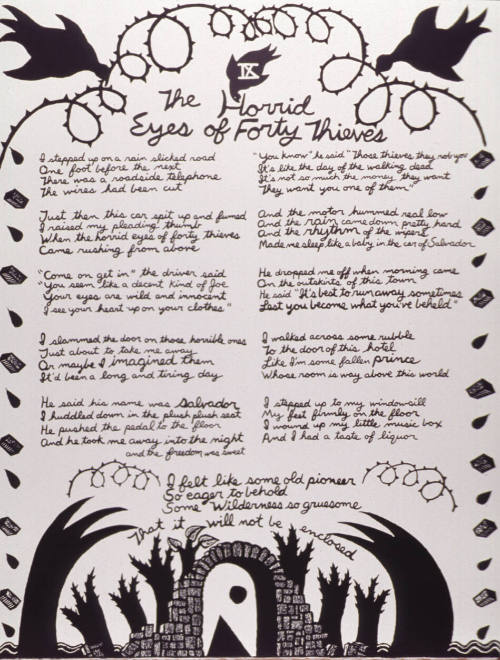 IX
The Horrid
Eyes of Forty Thieves
I stepped up on a rain slicked road
One foot before the next
There was a roadside telephone
The wires had been cut
Just then this car spit up and fumed
I raised my pleading thumb
When the horrid eyes of forty thieves
Came rushing from above
"Come on get in" the driver said
"You seem like a decent kind of Joe
Your eyes are wild and innocent
I see your heart up on your clothes"
I slammed the door on those horrible ones
Just about to take me away
Or maybe I imagined them
It'd been a long and tiring day
He said his name was Salvador
I huddled down in the plush plush seat
He pushed the pedal to the floor
And he took me away into the night
and the freedom was sweet
"You know" he said "Those thieves they rob you
It's like the day of the walking dead
It's not so much the money they want
They want you one of them"
And the motor hummed real low
And the rain came down pretty hard
And the rhythm of the wipers
Made me sleep like a baby in the car of Salvador
He dropped me off when morning came
On the outskirts of this town
He said "It's best to run away sometimes
Lest you become what you've beheld"
I walked across some rubble
To the door of this hotel
Like I'm some fallen prince
Whose room is way above this world
I stepped up to my windowsill
My feet firmly on the floor
I wound up my little music box
And I had a taste of liquor
I felt like some old pioneer
So eager to behold
Some Wilderness so gruesome
That it will not be enclosed